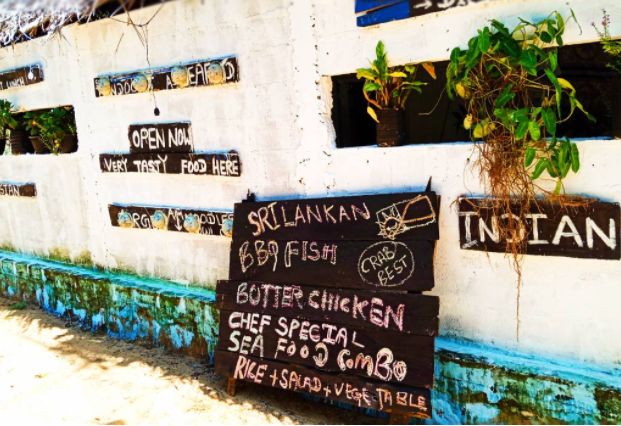 LUNCH
SEAFOOD
OPEN NOW
VERY TASTY FOOD HERE
NOODLES
SRI LANKAN
BBQ FISH
CRAB
BEST
BOTTER CHICKEN
CHEF SPECIAL
SEA FOOD COMBO
RICE + SALAD + VEGETABLE
INDIAN